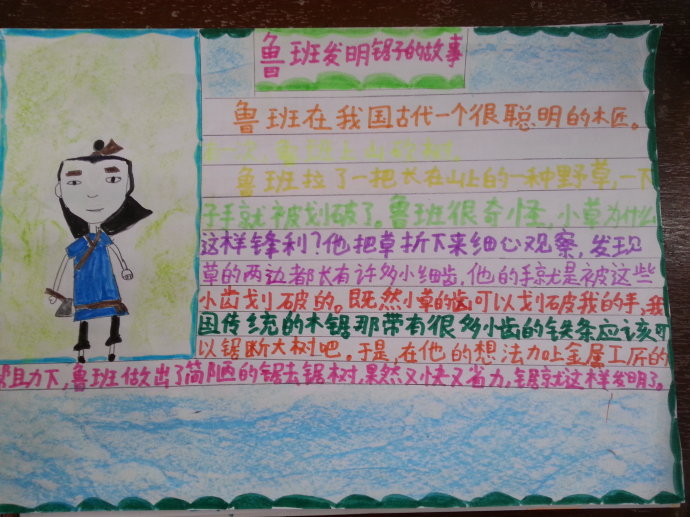 鲁班发明锯子的故事
鲁班在我国古代一个很聪明的木匠。
有一次,鲁班上山砍树,
鲁班拉了一把长在山上的一种野草,一下
子手就被划破了。鲁班很奇怪,小草为什么
这样锋利?他把草折下来细心观察,发现
草的两边都长有许多小细齿,他的手就是被这些
小齿划破的。既然小草的齿可以划破我的手,我
国传统的木锯那带有很多小齿的铁条应该可
以锯断大树吧。于是,在他的想法加上金属工匠的
阻力下,鲁班做出了简陋的锯去锯树,果然又快又省力,锯就这样发明了。